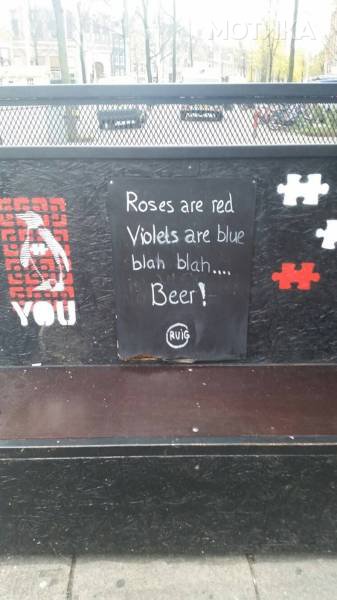 МОТИКА
Roses are red
Violets are blue
blah blah....
Beer!
RUIG
YOU